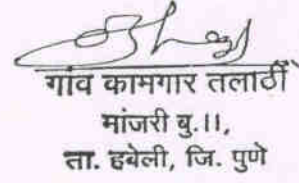 गांव कामगार तलाठी
मांजरी बु.।।,
ता. हवेली, जि. पुणे